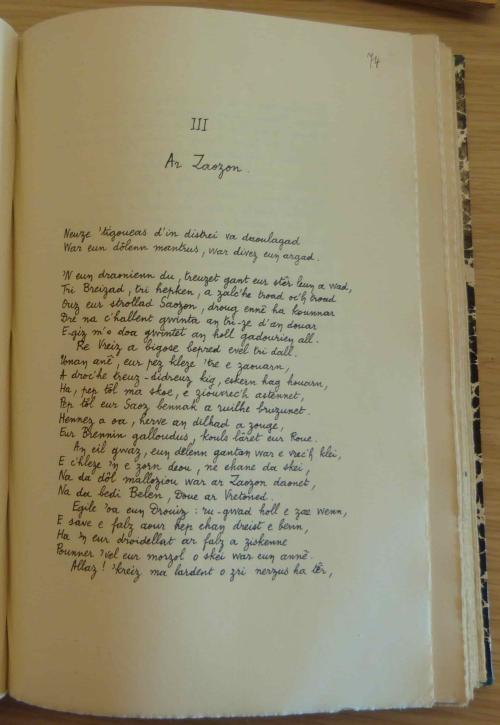 74
III
Ar Zaozon.
Neuze 'tigoueas d'in distrei va daoulagad
War eun dôlenn mantrus, war divez eun argad.
'N eun draonienn du, treuzet gant eur stêr leun a wad,
Tri Breizad, tri hepken, a zalc'he troad oc'h troad
Ouz eur strollad Saozon, droug ennê ha kounnar
Dre na c'hallent gwinta an tri-ze d'an douar
E-giz m'o doa gwintet an holl gadourien all.
Re Vreiz a bigose bepred evel tri dall.
Unan anê, eur pez kleze 'tre e zaouarn,
A droc'he treuz-didreuz kig, eskern hag houarn,
Ha, pep tôl ma skoe, e ziouvrec'h astennet,
Pep tôl eur Saoz bennak a ruilhe bruzunet.
Hennez a oa, herve an dilhad a zouge,
Eur Brennin galloudus, kouls lâret eur Roue.
An eil gwaz, eun delenn gantan war e vrec'h klei,
E c'hleze 'n e zorn deou, ne chane da skei,
Na da dôl malloziou war ar Zaozon daonet,
Na da bedi Belen, Doue ar Vretoned.
Egile 'oa eun Drouiz : ru-gwad holl e zae wenn,
E save e falz aour hep chan dreist e benn,
Ha 'n eur droidellat ar falz a ziskenne
Pounner 'vel eur morzol o skei war eun annê.
Allaz ! 'kreiz ma lardent o zri nerzus ha têr,